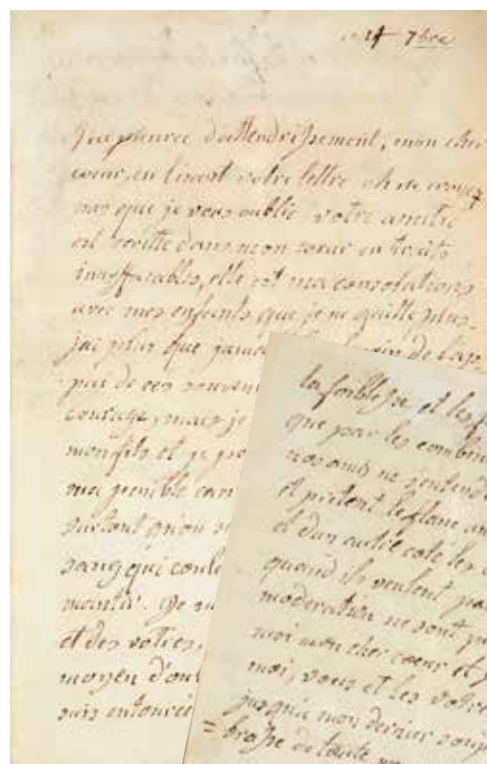 ce 14 7bre
J'ai pleurée d'attendrissement, mon cher
coeur, en lisant votre lettre oh ne croyez
pas que je vous oublie votre amitié
est ecritte dans mon coeur en traits
inneffacables, elle est ma consolation
avec mes enfants que je ne quitte plus.
j'ai plus que jamais
pui de ces souveni
courage, mais je
mon fils et je
ma penible car
surtout qu'on
sang qui coule
mentir.
et des votres
moyen d'ou
suis entourée
la foiblesse et les
que par les combin
nos amis ne s'entend
et pretent le flanc au
et d'un autre coté les
quand ils veulent par
moderation ne sont
moi mon cher coeur et
moi, vous et les votre
jusqu'a mon dernier soup
= brasse de toute